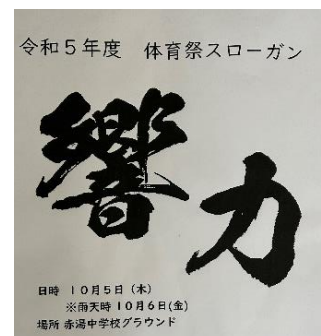 令和５年度　体育祭スローガン
響
力
日時　１０月５日（木）
※雨天時１０月６日(金)
場所 赤湯中学校グラウンド